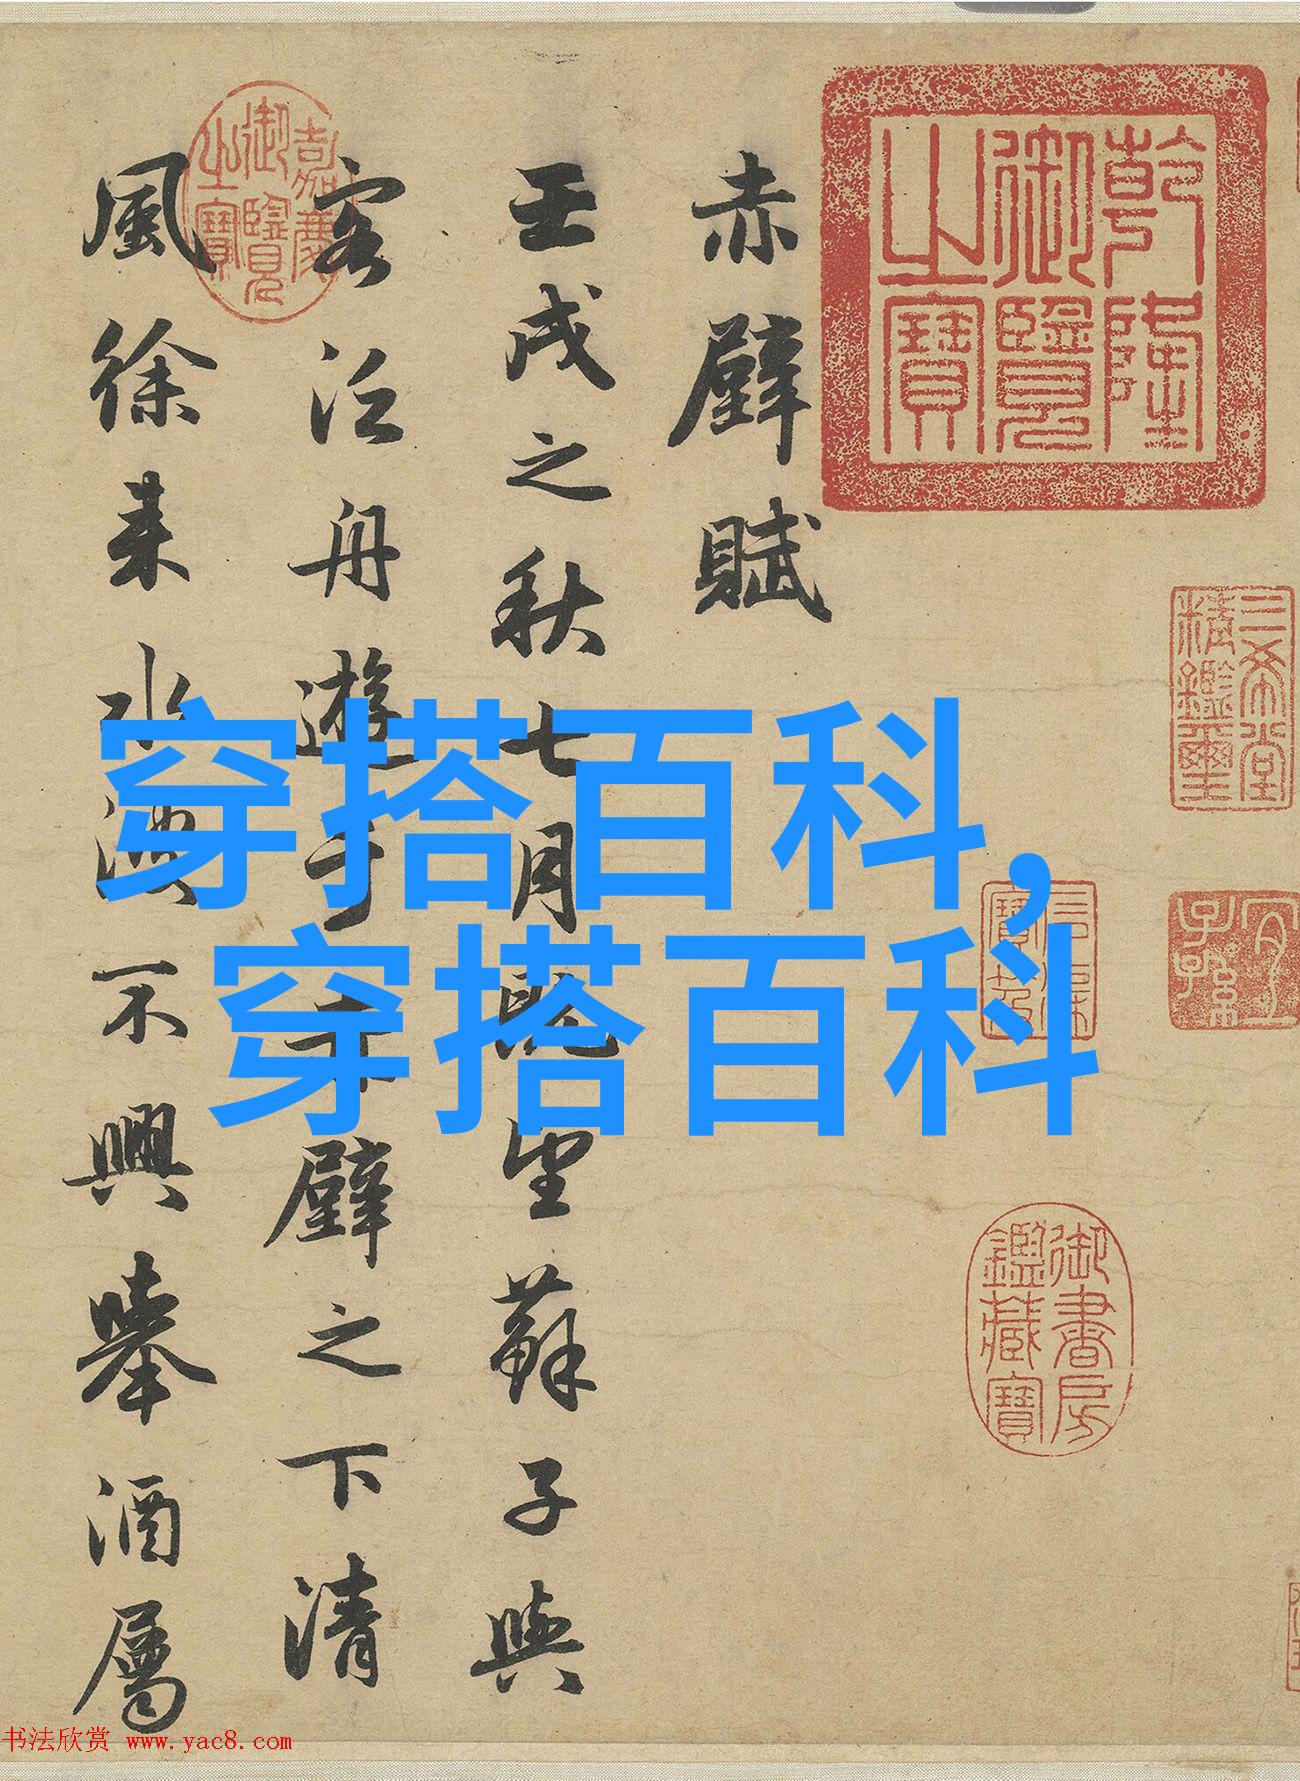 乾隆御覽之寶
三希堂精鑑璽
宜子孫
石渠寶笈
御書房鑑藏寶
赤壁賦
壬戌之秋七月既望蘇子與
客泛舟遊于赤壁之下清
嘉慶御覽之寶
風徐來水波不興舉酒屬
穿搭百科,
穿搭百科
书法欣赏 www.yac8.com